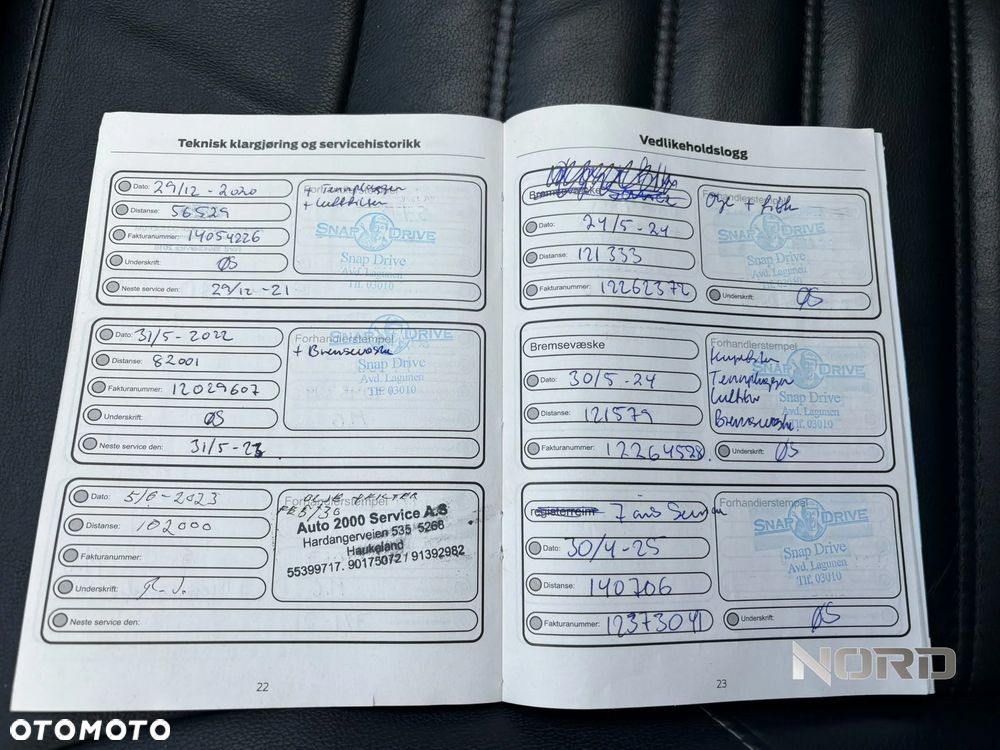 Teknisk klargjøring og servicehistorikk
Dato: 29/12 - 2020
Distanse: 56529
Fakturanummer: 14054226
Underskrift: ØS
Neste service den: 29/12 - 21
Forhandlerstempel
+ Tennplugger
+ Luftfilter
SNAP DRIVE
Snap Drive
Avd. Lagunen
Tlf. 03010
Dato: 31/5 - 2022
Distanse: 82001
Fakturanummer: 12029607
Underskrift: ØS
Neste service den: 31/5 - 23
Forhandlerstempel
+ Bremsevæske
SNAP DRIVE
Snap Drive
Avd. Lagunen
Tlf. 03010
Dato: 5/6 - 2023
Distanse: 102000
Fakturanummer:
Underskrift:
Neste service den:
Forhandlerstempel
5/30
Auto 2000 Service A.S
Hardangerveien 535 5266
Haukeland
55399717. 90175072 / 91392982
22
Vedlikeholdslogg
Bremsevæske
Dato: 24/5 - 24
Distanse: 121333
Fakturanummer: 12262372
Forhandlerstempel
Olje + filter
SNAP DRIVE
Snap Drive
Avd. Lagunen
Tlf. 03010
Underskrift: ØS
Bremsevæske
Dato: 30/5 - 24
Distanse: 121579
Fakturanummer: 12264528.
Forhandlerstempel
Tennplugger
Luftfilter
Bremsevæske.
SNAP DRIVE
Snap Drive
Avd. Lagunen
Tlf. 03010
Underskrift: ØS
registerreim 7 års
Dato: 30/4 - 25
Distanse: 140706
Fakturanummer: 12373041
Forhandlerstempel
SNAP DRIVE
Snap Drive
Avd. Lagunen
Tlf. 03010
Underskrift: ØS
23
NORD
OTOMOTO